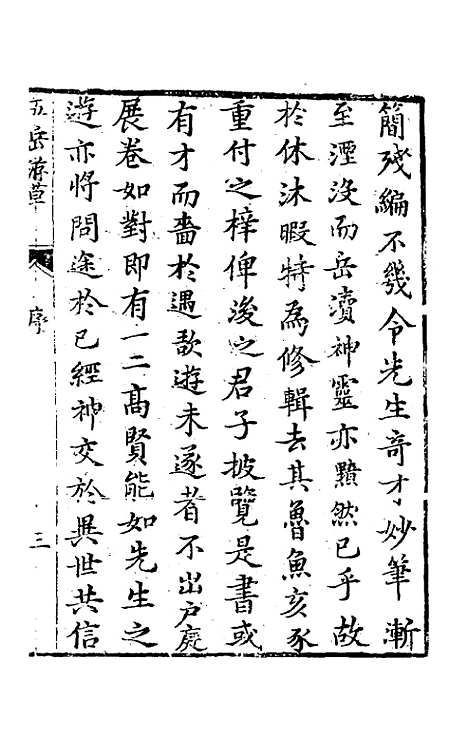 簡殘編不幾令先生竒才妙筆漸
至湮沒而岳瀆神靈亦黯然已乎故
於休沐暇特為修輯去其魯魚亥豕
重付之梓俾後之君子披覽是書或
有才而嗇於遇歆遊未遂者不出户庭
展卷如對即有一二高賢能如先生之
遊亦將問途於已經神交於異世共信
五岳游草
序
三